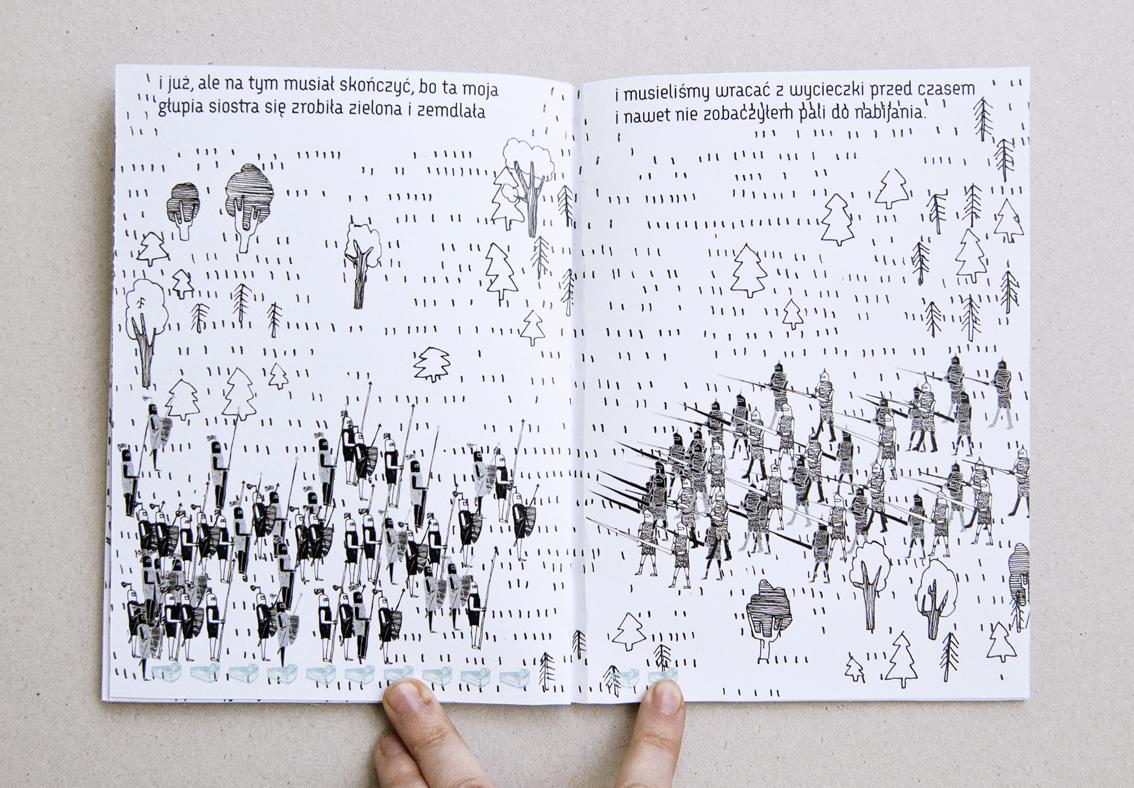 i już, ale na tym musiał skończyć, bo ta moja
głupia siostra się zrobiła zielona i zemdlała
i musieliśmy wracać z wycieczki przed czasem
i nawet nie zobaczyłem pali do nabijania.